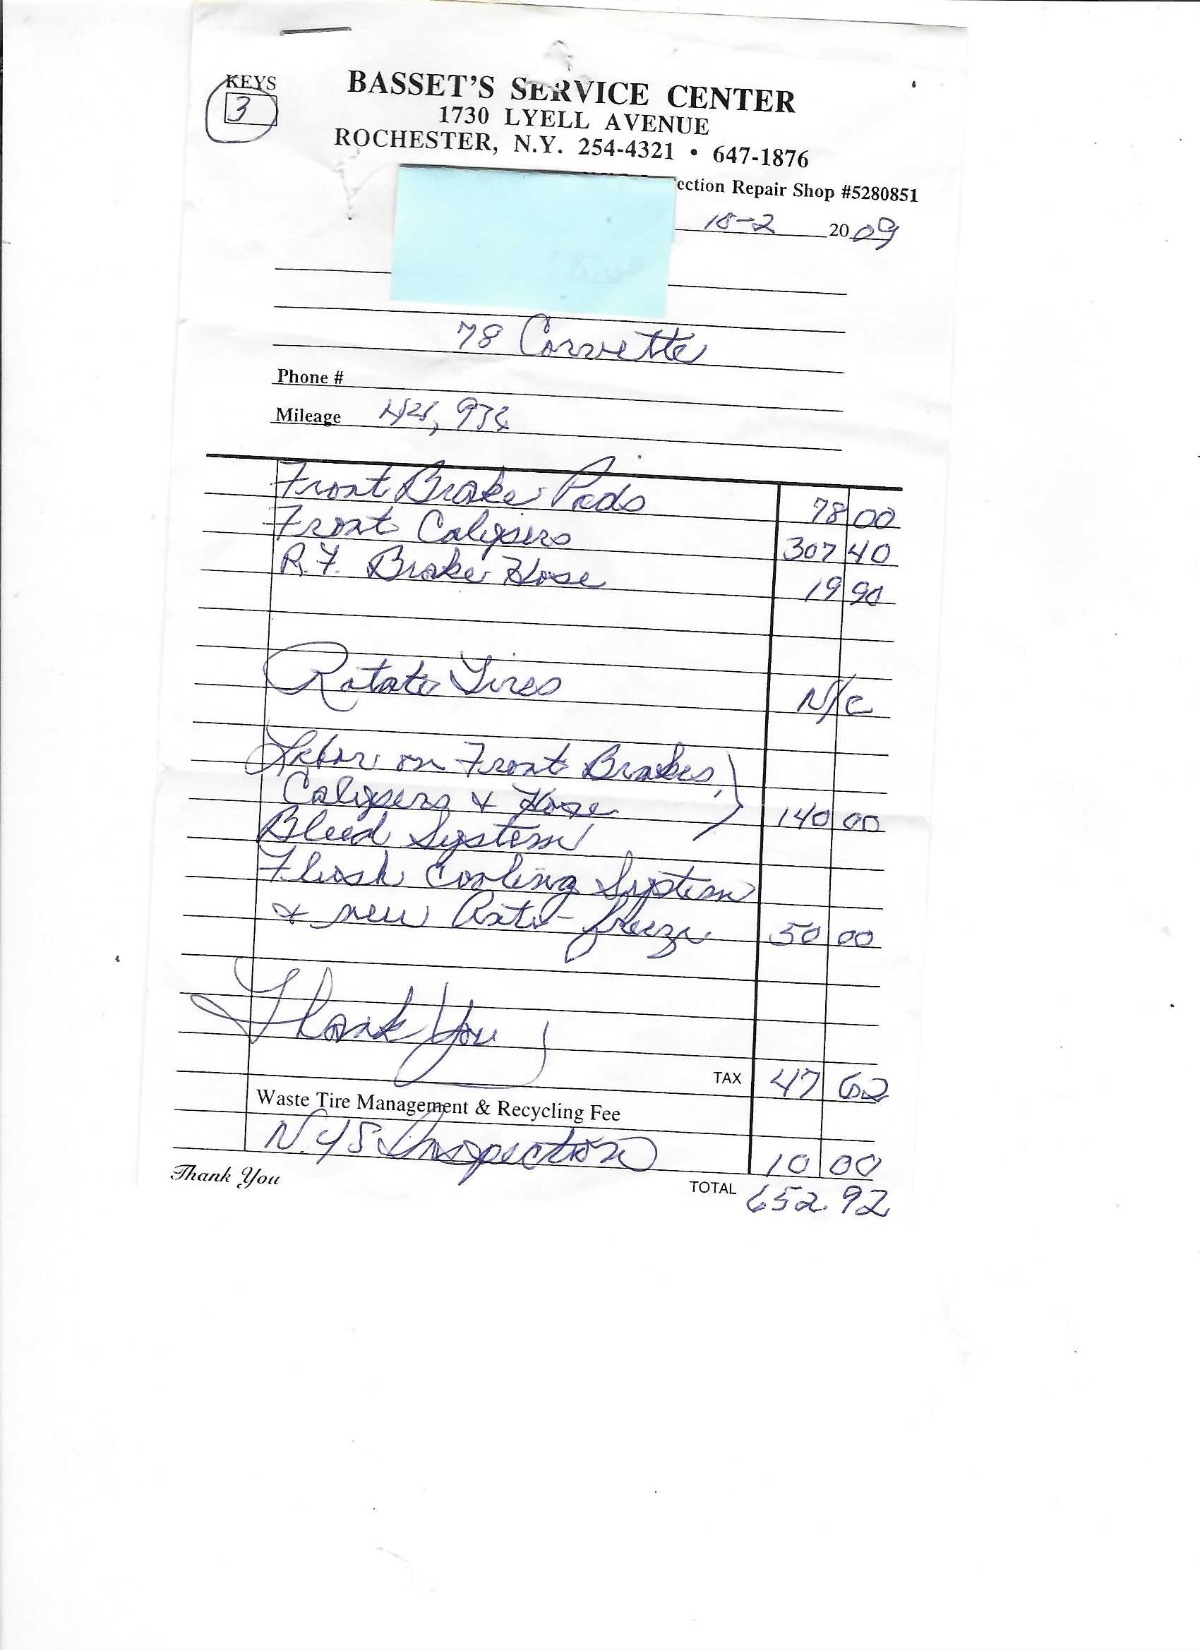 KEYS
3
BASSET'S SERVICE CENTER
1730 LYELL AVENUE
ROCHESTER, N.Y. 254-4321 • 647-1876
ection Repair Shop #5280851
2009
78 Corvette
Phone #
Mileage
Front Brake Pads 78 00
Front Calipers 307 40
R.F. Brake Hose 19 90
Rotate Tires N/C
Labor on Front Brakes,
Calipers & Hose 140 00
Bleed System
Flush Cooling System
& new Anti-freeze 50 00
Thank You
TAX 47 62
Waste Tire Management & Recycling Fee
NYS Inspection 10 00
Thank You TOTAL 652.92